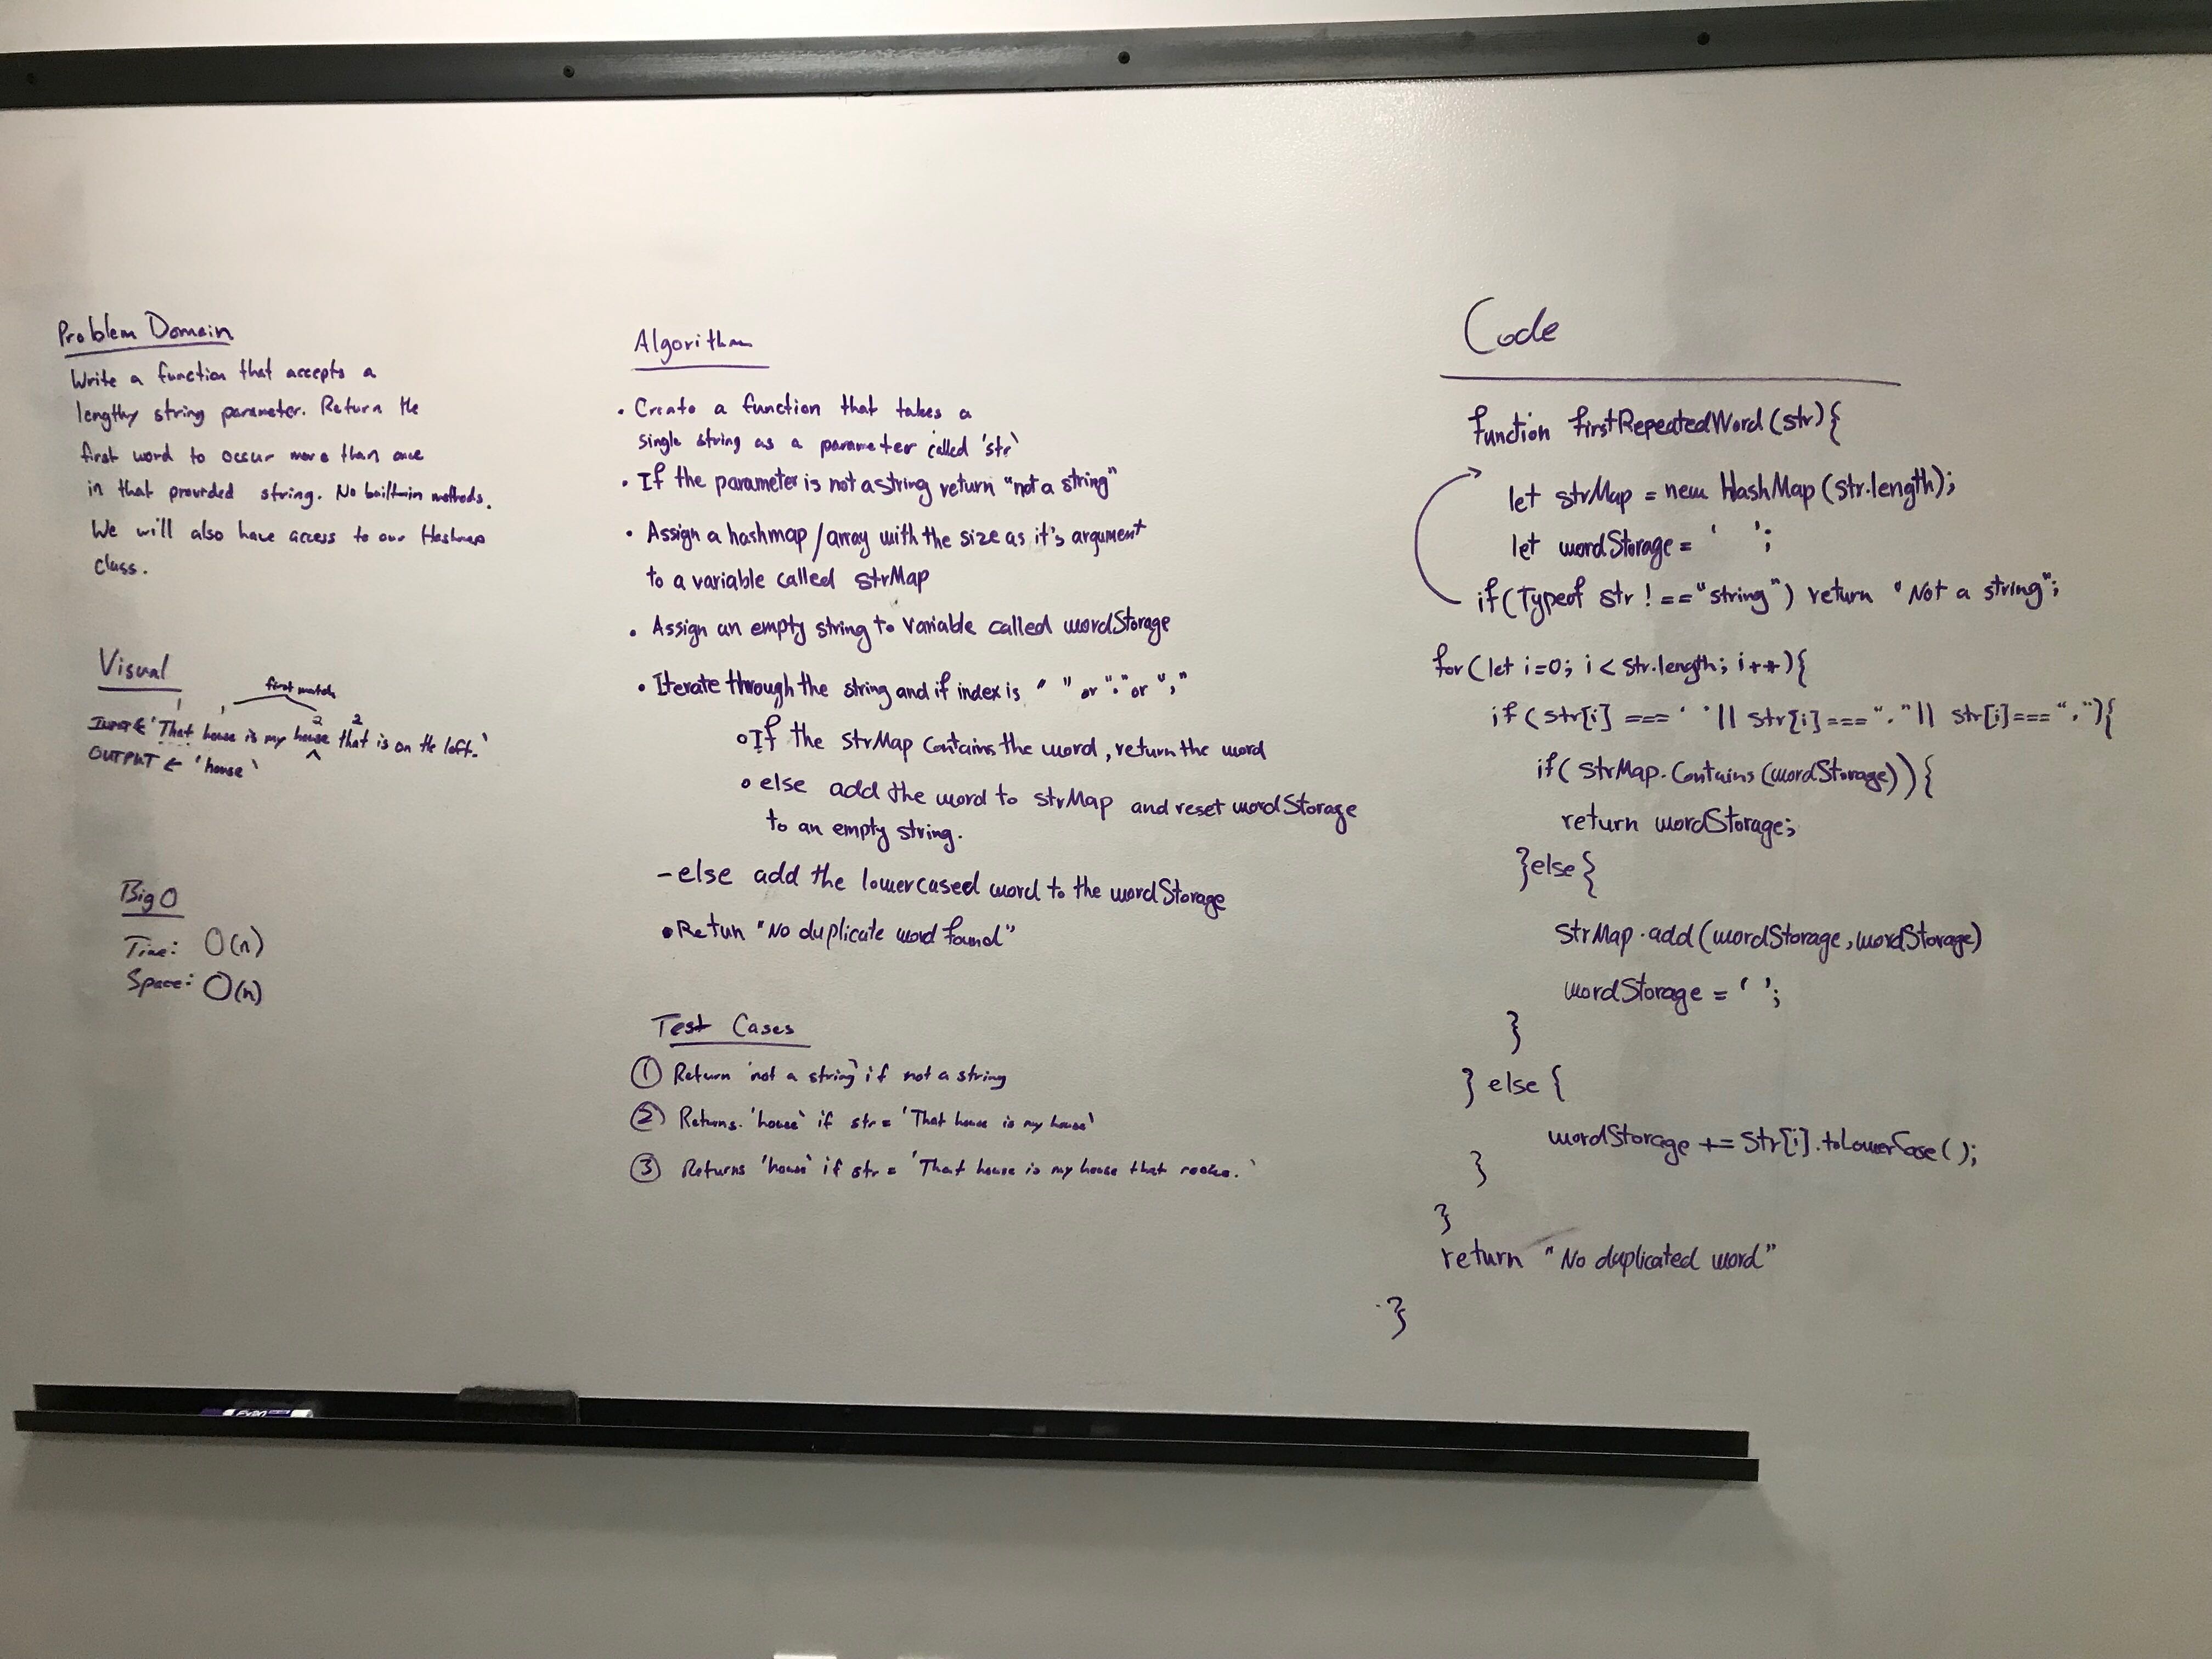 Problem Domain
Write a function that accepts a
lengthy string parameter. Return the
first word to occur more than once
in that provided string. No built-in methods.
We will also have access to our Hashmap
class.
Visual
first match
1 1 2 2
INPUT ← 'That house is my house that is on the left.'
^
OUTPUT ← 'house'
Big O
Time: O(n)
Space: O(n)
Algorithm
• Create a function that takes a
single string as a parameter called 'str'
• If the parameter is not a string return "not a string"
• Assign a hashmap/array with the size as it's argument
to a variable called strMap
• Assign an empty string to variable called wordStorage
• Iterate through the string and if index is " " or "." or ","
o If the strMap contains the word, return the word
o else add the word to strMap and reset wordStorage
to an empty string.
- else add the lowercased word to the wordStorage
• Retun "No duplicate word found"
Test Cases
① Return 'not a string' if not a string
② Returns 'house' if str = 'That house is my house'
③ Returns 'house' if str = 'That house is my house that rocks.'
Code
function firstRepeatedWord(str){
let strMap = new HashMap(str.length);
let wordStorage = ' ';
if(Typeof str !== "string") return "Not a string";
for(let i=0; i < str.length; i++){
if(str[i] === ' ' || str[i] === "." || str[i] === ","){
if(strMap.Contains(wordStorage)){
return wordStorage;
}else{
strMap.add(wordStorage, wordStorage)
wordStorage = ' ';
}
} else {
wordStorage += str[i].toLowerCase();
}
}
return "No duplicated word"
}
EXPO